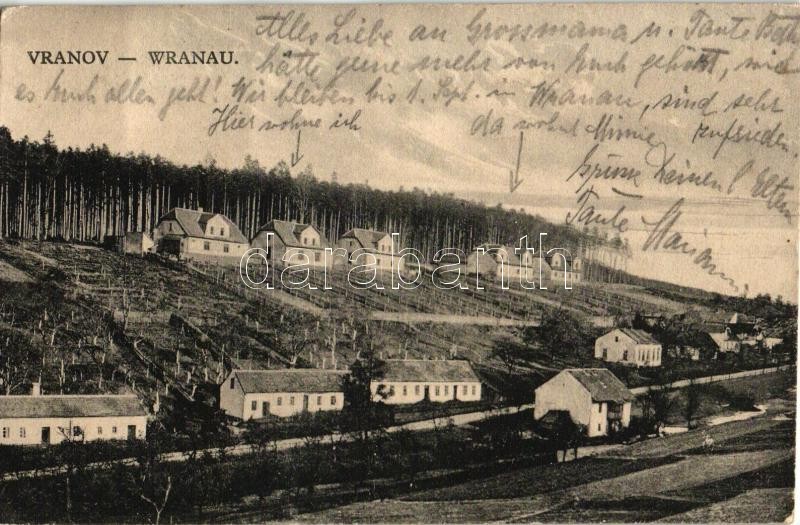 VRANOV — WRANAU.
Alles Liebe an Grossmama u. Tante Beth
hätte gerne mehr von Euch gehört, wie
es Euch allen geht! Wir bleiben bis 1. Sept. in Wranau, sind sehr
zufrieden.
Hier wohne ich
da wohnt Minnie
Grüsse Deinen l. Eltern
Tante
darabanth.com